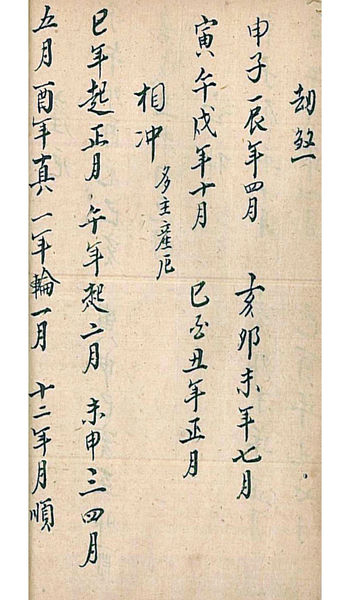 劫煞
申子辰年四月 亥卯未年七月
寅午戌年十月 巳酉丑年正月
相冲 多主產厄
巳年起正月 午年起二月 未申三四月
五月酉年真 一年輪一月 十二年月順